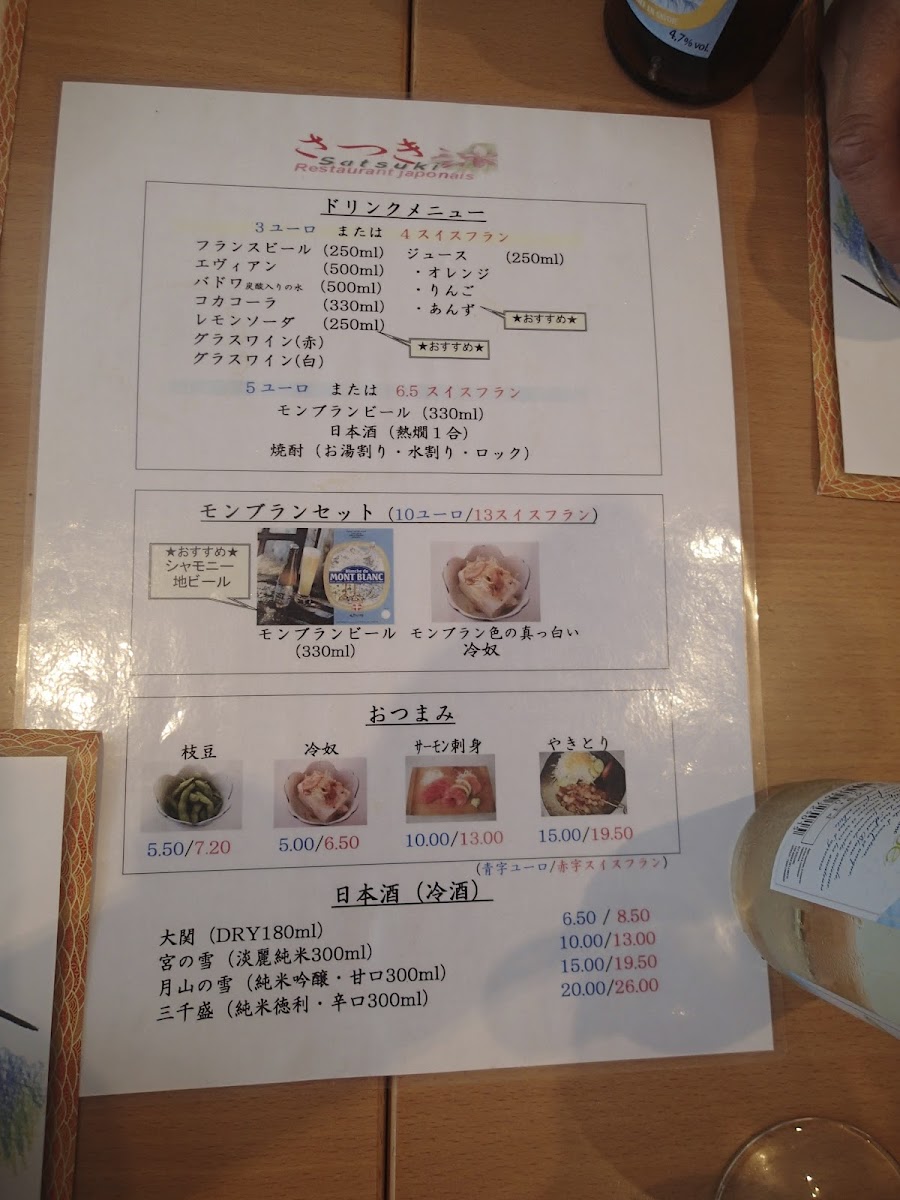 4.7% vol.
さつき
Satsuki
Restaurant japonais
ドリンクメニュー
3ユーロ または 4スイスフラン
フランスビール (250ml)
エヴィアン (500ml)
バドワ炭酸入りの水 (500ml)
コカコーラ (330ml)
レモンソーダ (250ml)
★おすすめ★
グラスワイン(赤)
グラスワイン(白)
ジュース (250ml)
・オレンジ
・りんご
・あんず
★おすすめ★
5ユーロ または 6.5スイスフラン
モンブランビール (330ml)
日本酒（熱燗1合）
焼酎（お湯割り・水割り・ロック）
モンブランセット (10ユーロ/13スイスフラン)
★おすすめ★
シャモニー
地ビール
Blanche du
MONT BLANC
モンブランビール
(330ml)
モンブラン色の真っ白い
冷奴
おつまみ
枝豆 冷奴 サーモン刺身 やきとり
5.50/7.20 5.00/6.50 10.00/13.00 15.00/19.50
(青字ユーロ/赤字スイスフラン)
日本酒（冷酒）
大関（DRY180ml） 6.50 / 8.50
宮の雪（淡麗純米300ml） 10.00/13.00
月山の雪（純米吟醸・甘口300ml） 15.00/19.50
三千盛（純米徳利・辛口300ml） 20.00/26.00